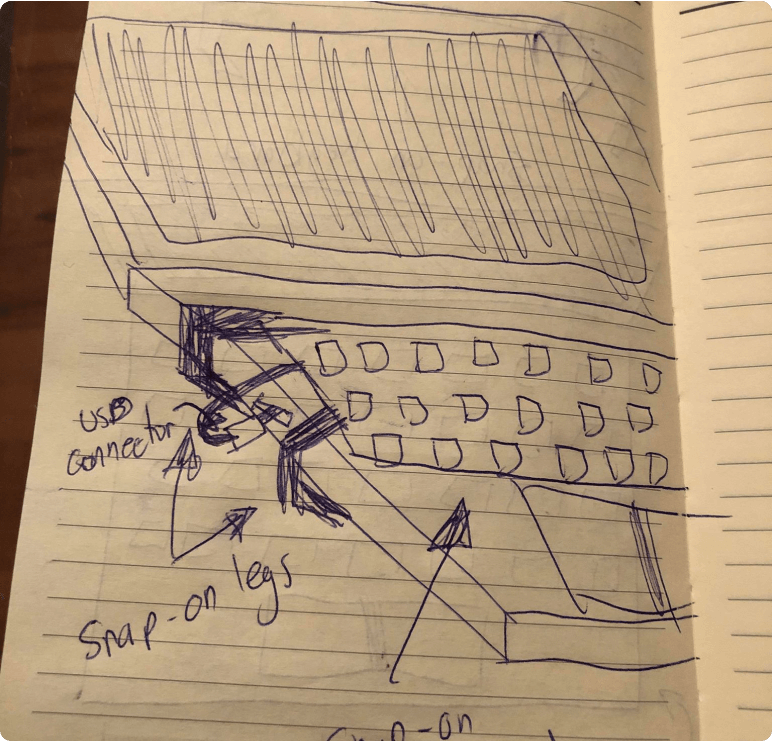 USB
connector
Snap-on legs
Snap-on